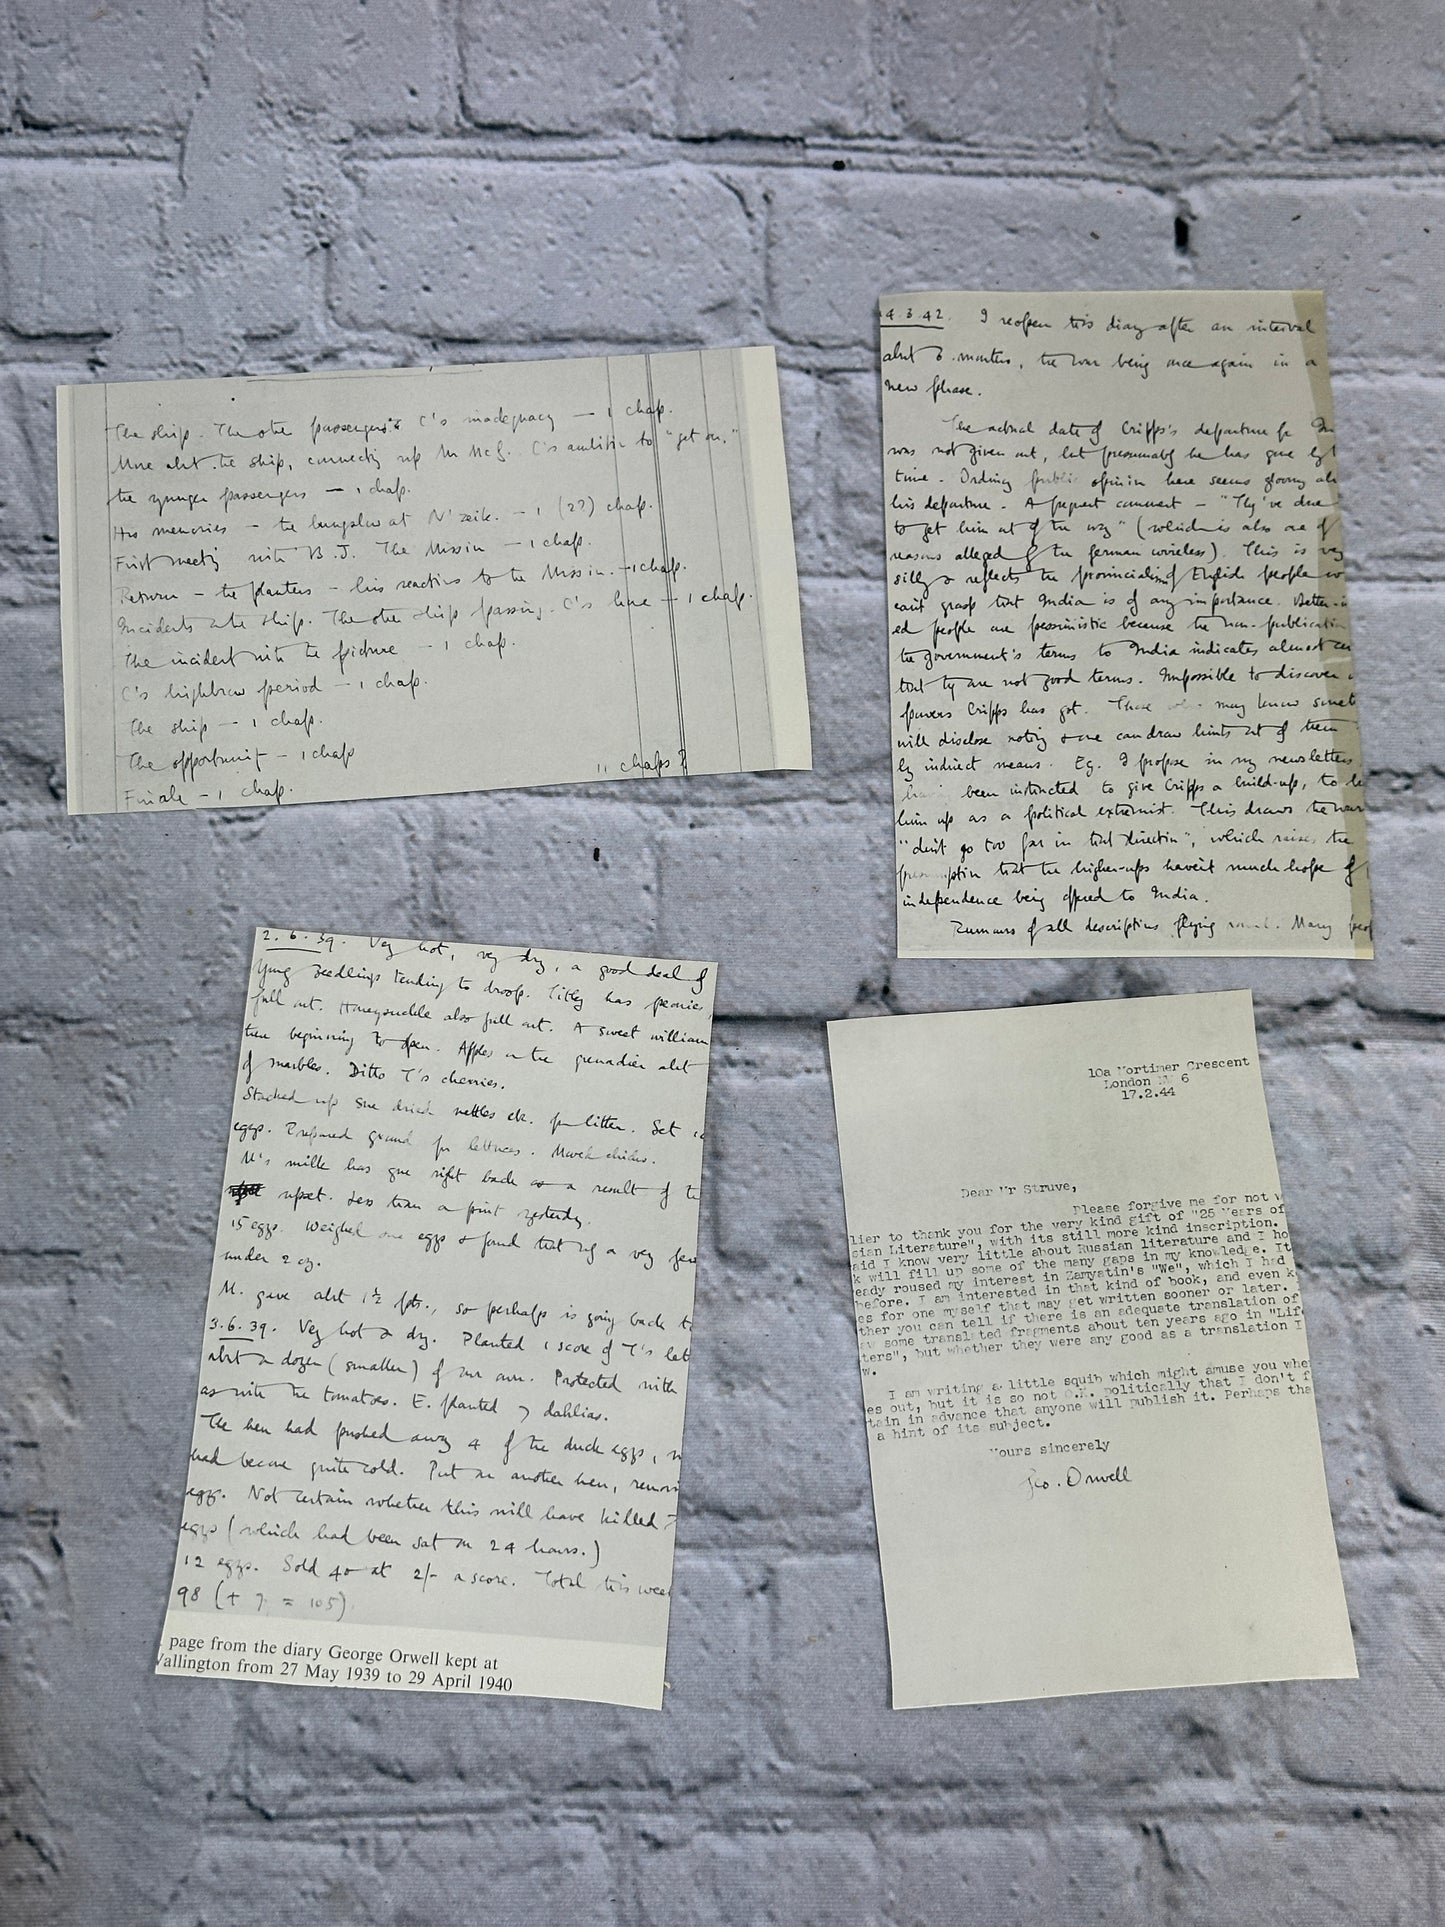 The ship. The other passengers & C's inadequacy — 1 chap.
More abt the ship, connecting up Mr McG. C's ambition to "get on,"
the younger passengers — 1 chap.
His memories — the bungalow at N'zeik. — 1 (2?) chap.
First meeting with B.J. The Mission — 1 chap.
Return — the planters — his reaction to the Mission. — 1 chap.
Incidents on the ship. The other ship passing. C's love — 1 chap.
The incident with the picture — 1 chap.
C's highbrow period — 1 chap.
The ship — 1 chap.
The opportunity — 1 chap
11 chaps?
Finale — 1 chap.
4.3.42. I reopen this diary after an interval
abt 6 months, the war being once again in a
new phase.
The actual date of Cripps's departure
was not given out, but presumably he has gone by
time. Ordinary public opinion here seems gloomy
his departure. A frequent comment — "They've done
to get him out of the way" (which is also one of
reasons alleged by the German wireless). This is very
silly & reflects the provincialism of English people
can't grasp that India is of any importance. Better-in
ed people are pessimistic because the non-publication
the government's terms to India indicates almost
that they are not good terms. Impossible to discover
powers Cripps has got. Those who may know
will disclose nothing & one can draw hints out of them
by indirect means. Eg. I propose in my newsletters,
having been instructed to give Cripps a build-up, to
him up as a political extremist. This draws the
"don't go too far in that direction", which raises the
presumption that the higher-ups haven't much hope of
independence being offered to India.
Rumours of all descriptions flying round. Many
2.6.39. Very hot, very dry, a good deal of
Young seedlings tending to droop. Titley has peonies
full out. Honeysuckle also full out. A sweet william
here beginning to open. Apples on the grenadier abt
of marbles. Ditto T's cherries.
Stacked up some dried nettles etc. for litter. Set
eggs. Prepared ground for lettuces.
M's milk has gone right back as a result of
upset. Less than a pint yesterday.
15 eggs. Weighed some eggs & found that only a very few
under 2 oz.
M. gave abt 1½ pts., so perhaps is going back to
3.6.39. Very hot & dry. Planted 1 score of T's let
abt a dozen (smaller) of our own. Protected with
as with the tomatoes. E. planted dahlias.
The hen had pushed away 4 of the duck eggs,
had become quite cold. Put on another hen,
eggs. Not certain whether this will have killed
eggs (which had been sat on 24 hours.)
12 eggs. Sold 40 at 2/- a score. Total this week
98 (+ 7 = 105).
page from the diary George Orwell kept at
Wallington from 27 May 1939 to 29 April 1940
10a Mortimer Crescent
London NW 6
17.2.44
Dear Mr Struve,
Please forgive me for not
lier to thank you for the very kind gift of "25 Years of
sian Literature", with its still more kind inscription.
aid I know very little about Russian literature and I ho
k will fill up some of the many gaps in my knowledge. It
eady roused my interest in Zamyatin's "We", which I had
before. I am interested in that kind of book, and even k
es for one myself that may get written sooner or later.
ther you can tell if there is an adequate translation of
aw some translated fragments about ten years ago in "Lif
ters", but whether they were any good as a translation I
w.
I am writing a little squib which might amuse you whe
es out, but it is so not O.K. politically that I don't f
tain in advance that anyone will publish it. Perhaps tha
a hint of its subject.
Yours sincerely
Geo. Orwell